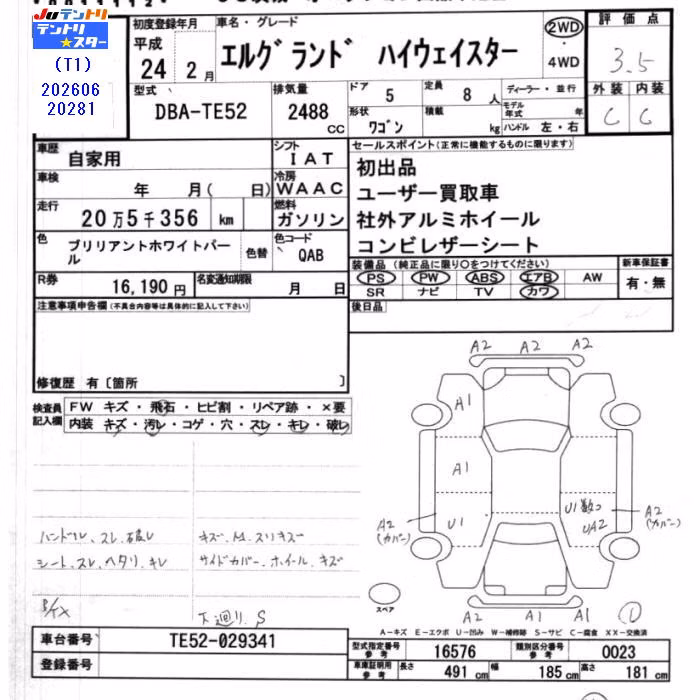 JUテントリ
テントリ★スター
(T1)
202606
20281
初度登録年月
平成
24 2 月
車名・グレード
エルグランド ハイウェイスター
2WD
・
4WD
評価点
3.5
外装 内装
C C
型式
DBA-TE52
排気量
2488
CC
ドア
5
定員
8 人
形状
ワゴン
積載
kg
ディーラー・並行
モデル年式 年
ハンドル 左・右
車歴
自家用
シフト
IAT
車検
年 月( 日)
冷房
WAAC
走行
20万5千356 km
燃料
ガソリン
色
ブリリアントホワイトパール
色替
色コード
QAB
R券
16,190円
名変通知期限
月 日
セールスポイント(正常に機能するものに限ります)
初出品
ユーザー買取車
社外アルミホイール
コンビレザーシート
装備品(純正品に限り○をつけてください)
PS PW ABS エアB AW
SR ナビ TV カワ
新車保証書
有・無
後日品
注意事項申告欄(不具合内容等は具体的に記入して下さい)
修復歴 有〔箇所 〕
検査員記入欄
FW キズ・飛石・ヒビ割・リペア跡・×要
内装 キズ・汚レ・コゲ・穴・スレ・キレ・破レ
ハンドル、スレ、破レ
シート、スレ、ヘタリ、キレ
キズ、M、スリキズ
サイドカバー、ホイール、キズ
下廻り、S
A2 A2 A2
A1
A1
U1
A2
(カバー)
U1数つ
UA2
A2
(カバー)
A2 A1 A1
スペア
A-キズ E-エクボ U-凹み W-補修跡 S-サビ C-腐食 XX-交換済
車台番号
TE52-029341
登録番号
型式指定番号 参考
16576
類別区分番号 参考
0023
車庫証明用 参考
長さ 491 cm
幅 185 cm
高さ 181 cm